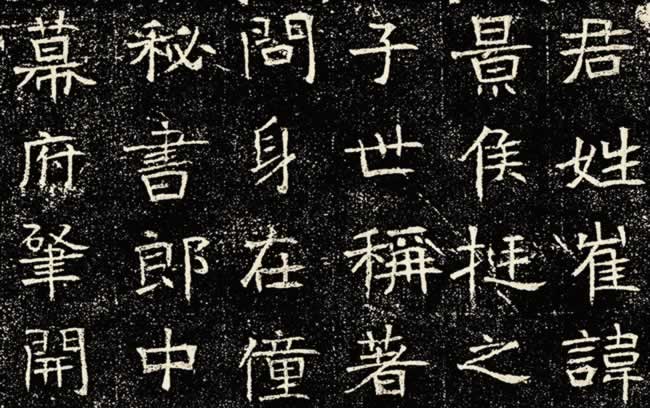 君姓崔諱
景侯挺之
子世稱著
問身在僮
秘書郎中
幕府肇開